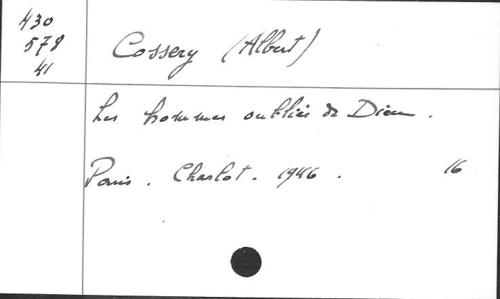 430
578
41
Cossery (Albert)
Les hommes oubliés de Dieu.
Paris. Charlot. 1946. 16